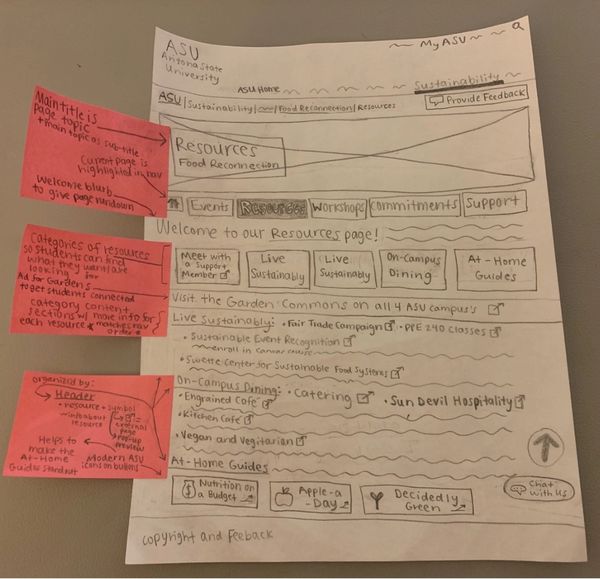 ASU
Arizona State
University
MyASU
ASU Home
Sustainability
ASU | Sustainability | Food Reconnection | Resources
Provide Feedback
Resources
Food Reconnection
Events
Resources
Workshops
Commitments
Support
Welcome to our Resources page!
Meet with
a Support
Member
Live
Sustainably
Live
Sustainably
On-Campus
Dining
At-Home
Guides
Visit the Garden Commons on all 4 ASU campus's
Live Sustainably: • Fair Trade Campaign • PPE 240 Classes
• Sustainable Event Recognition
enroll in canvas course
• Swette Center for Sustainable Food Systems
On-Campus Dining: • Catering • Sun Devil Hospitality
• Engrained Cafe
• Kitchen Cafe
• Vegan and Vegitarian
At-Home Guides
Nutrition on
a Budget
Apple-a
-Day
Decidedly
Green
Chat
with us
copyright and feeback
Main title is
page topic
+ main topic as sub-title
Current page is
highlighted in nav
Welcome blurb
to give page rundown
Categories of resources
so students can find
what they want/are
looking for
Ad for Gardens
to get students connected
category content
sections w/ more info for
each resource * matches nav
order *
organized by:
Header
• resource + symbol
info about
resource
= external
page
= pop-up
preview
Helps to
make the
At-Home
Guides stand out
Modern ASU
icons on buttons